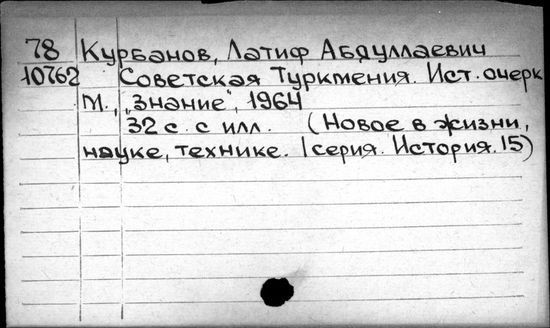 78 Курбанов, Латиф Абдуллаевич
10762 Советская Туркмения. Ист. очерк
М., „Знание", 1964
32 с. с илл. (Новое в жизни,
науке, технике. I серия. История. 15)